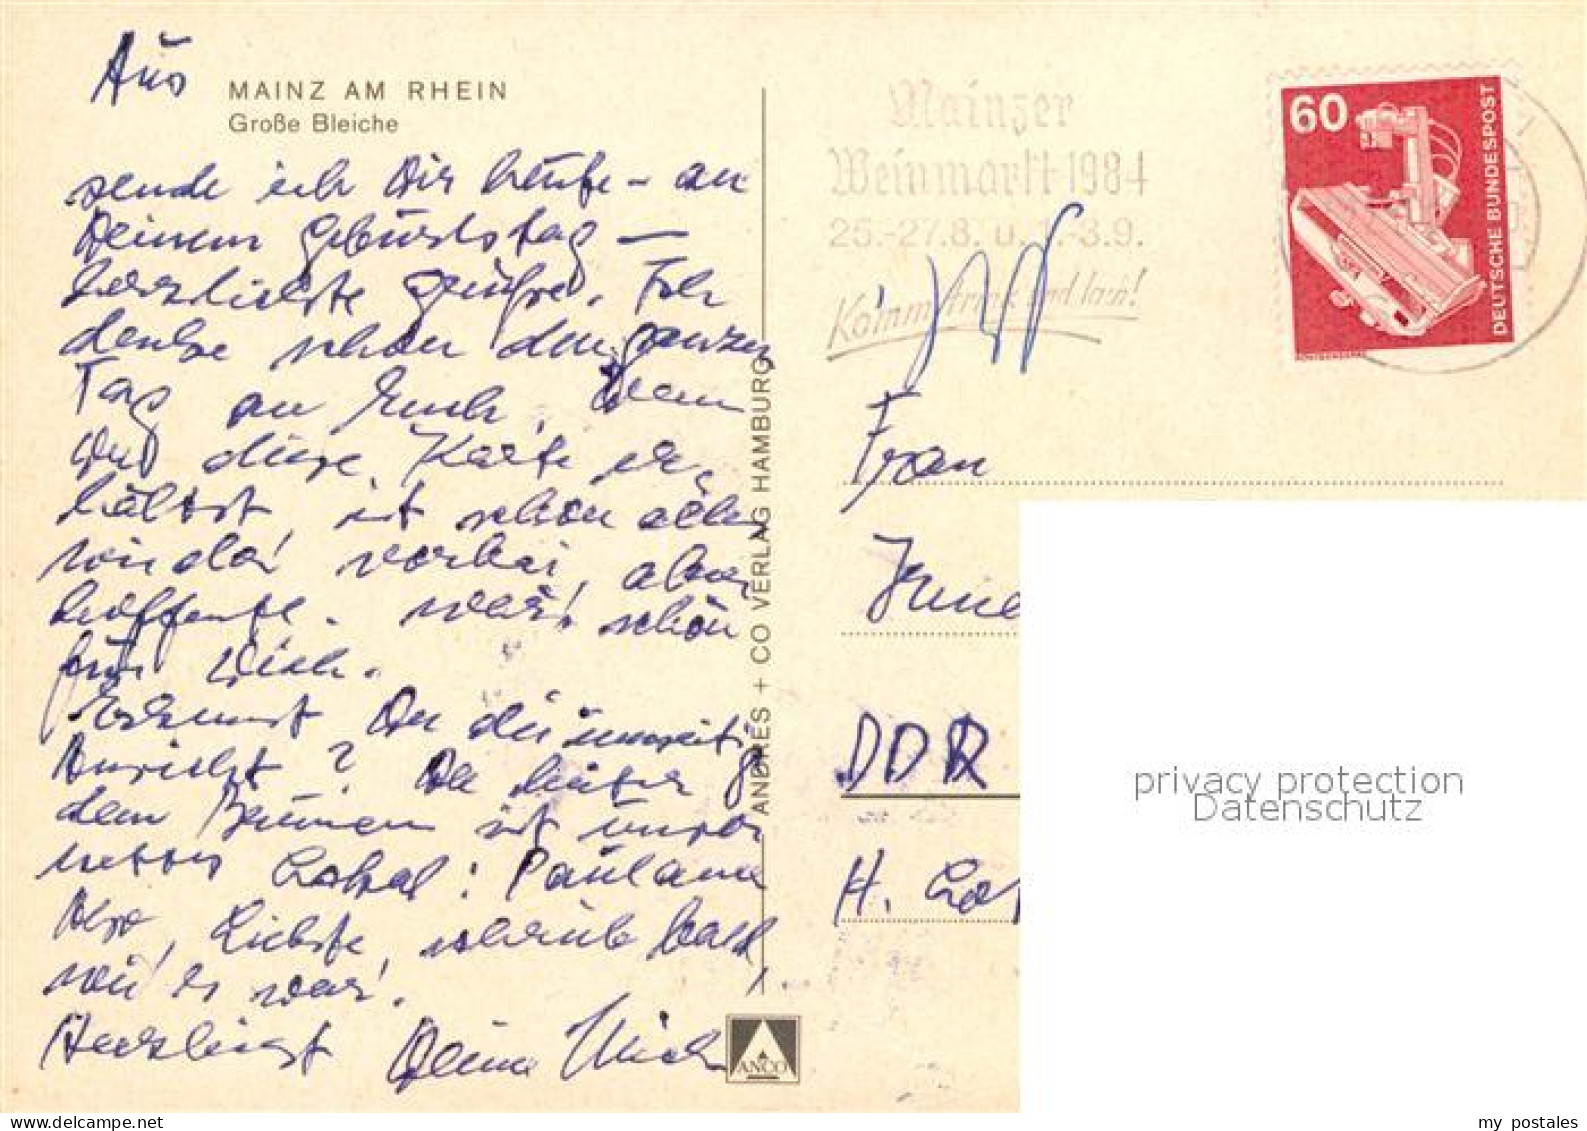 Aus
MAINZ AM RHEIN
Große Bleiche
sende ich Dir heute – an
Deinem Geburtstag —
herzlichste Grüße. Ich
denke schon den ganzen
Tag an Euch. Wenn
Du diese Karte er-
hältst, ist schon alles
wieder vorbei, aber
hoffentl. war's schön
für Dich.
Erkennst Du die umseitig
Ansicht? Da hinter
dem Brunnen ist unser
nettes Lokal: Paulaner
Also, Liebste, schreib bald,
wie es war!
Herzlichst Deine
ANDRES + CO VERLAG HAMBURG
ANCO
Mainzer
Weinmarkt 1984
25.-27.8. u. 1.-3.9.
Komm, trink und lach!
60
DEUTSCHE BUNDESPOST
Frau
DDR
H.
privacy protection
Datenschutz
my postales